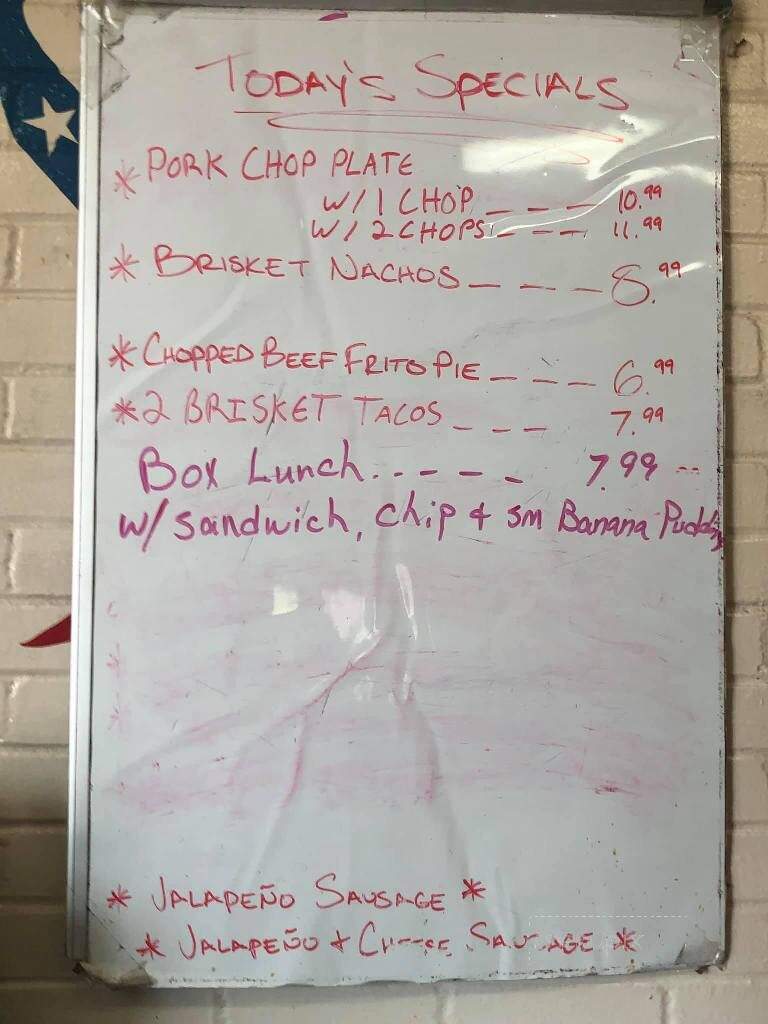 TODAY'S SPECIALS
* PORK CHOP PLATE
W/ 1 CHOP _ _ _ _ 10.99
W/ 2 CHOPS _ _ _ 11.99
* BRISKET NACHOS _ _ _ _ 8.99
* CHOPPED BEEF FRITO PIE _ _ _ _ 6.99
* 2 BRISKET TACOS _ _ _ 7.99
Box Lunch..- - - - 7.99 --
w/ sandwich, chip & sm Banana Pudding
* JALAPEÑO SAUSAGE *
* JALAPEÑO & CHEESE SAUSAGE *